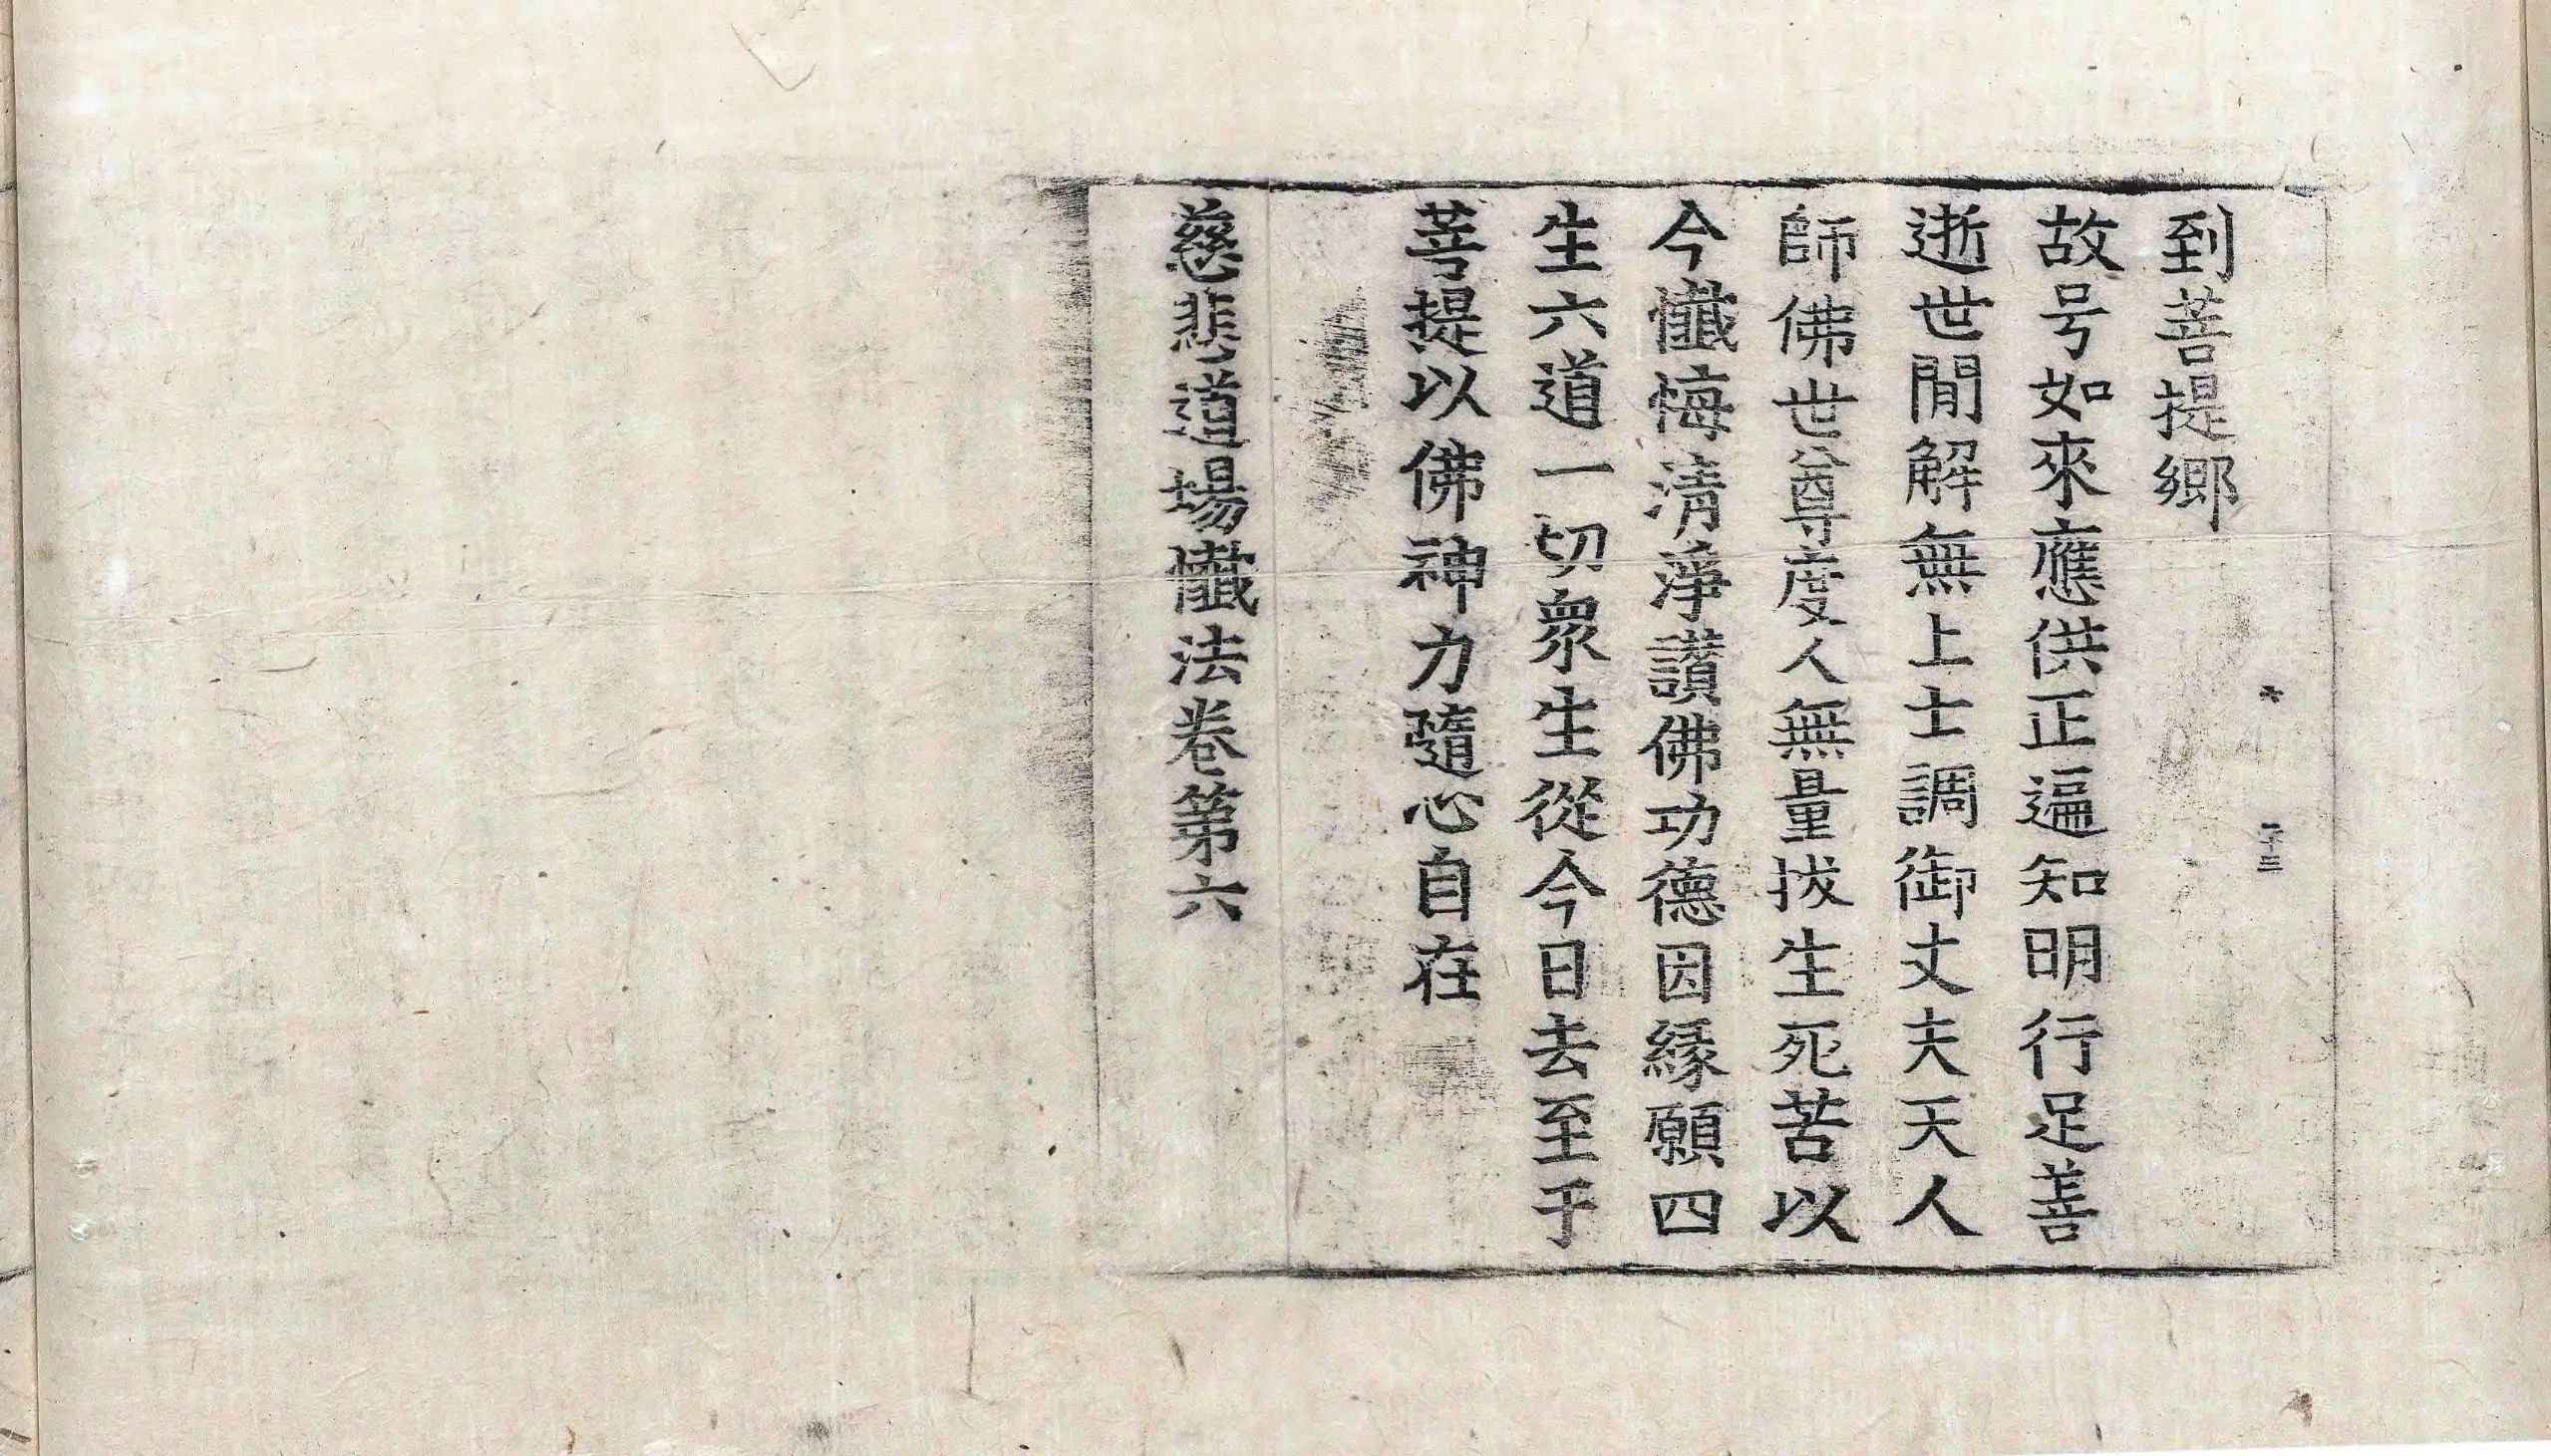 六 二十三
到菩提鄉
故号如來應供正遍知明行足善
逝世閒解無上士調御丈夫天人
師佛世尊度人無量拔生死苦以
今懺悔清淨讃佛功德因緣願四
生六道一切衆生從今日去至于
菩提以佛神力隨心自在
慈悲道場懺法卷第六